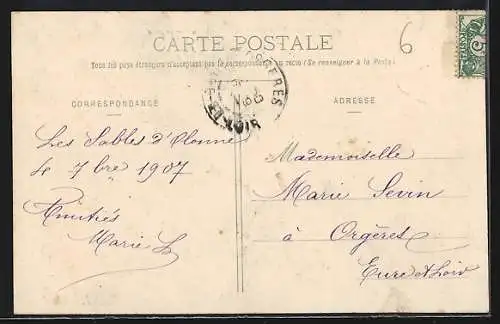 CARTE POSTALE
6
Tous les pays étrangers n'acceptent pas la correspondance au recto (Se renseigner à la Poste)
CORRESPONDANCE
ADRESSE
ORGERES
LOIR
Les Sables d'Olonne
le 7 bre 1907
Amitiés
Marie L
Mademoiselle
Marie Sevin
à Orgères
Eure et Loir
5